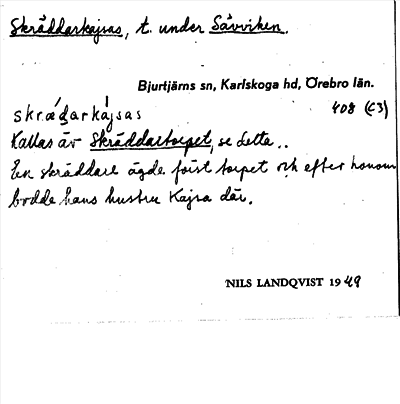 Skräddarkajsas, t. under Sävviken.
Bjurtjärns sn, Karlskoga hd, Örebro län.
skræ´d̠arkájsas 408 (C3)
Kallas äv Skräddartorpet, se detta..
En skräddare ägde först torpet och efter honom
bodde hans hustru Kajsa där.
NILS LANDQVIST 1949